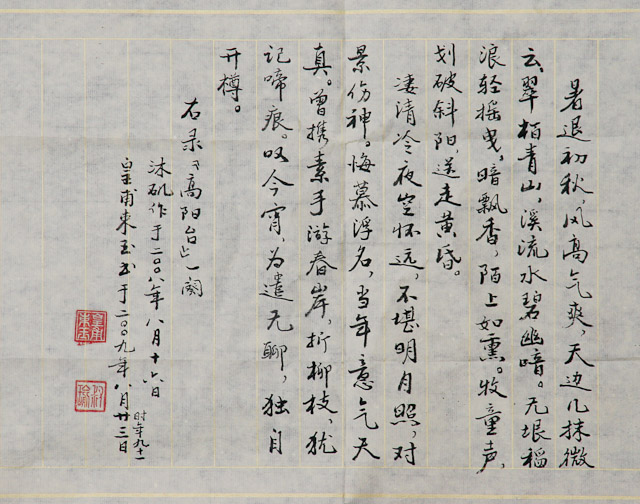 暑退初秋，风高气爽，天边几抹微
云。翠柏青山，溪流水碧幽暗。无垠稻
浪轻摇曳，暗飘香，陌上如熏。牧童声，
划破斜阳，送走黄昏。
凄清冷夜空怀远，不堪明月照，对
景伤神。悔慕浮名，当年意气天
真。曾携素手游春岸，折柳枝，犹
记啼痕。叹今宵，为遣无聊，独自
开樽。
右录《高阳台》一阕
沐矶作于二〇〇八年八月十六日
皇甫束玉书于二〇〇九年八月廿三日
时年九十一
皇甫束玉